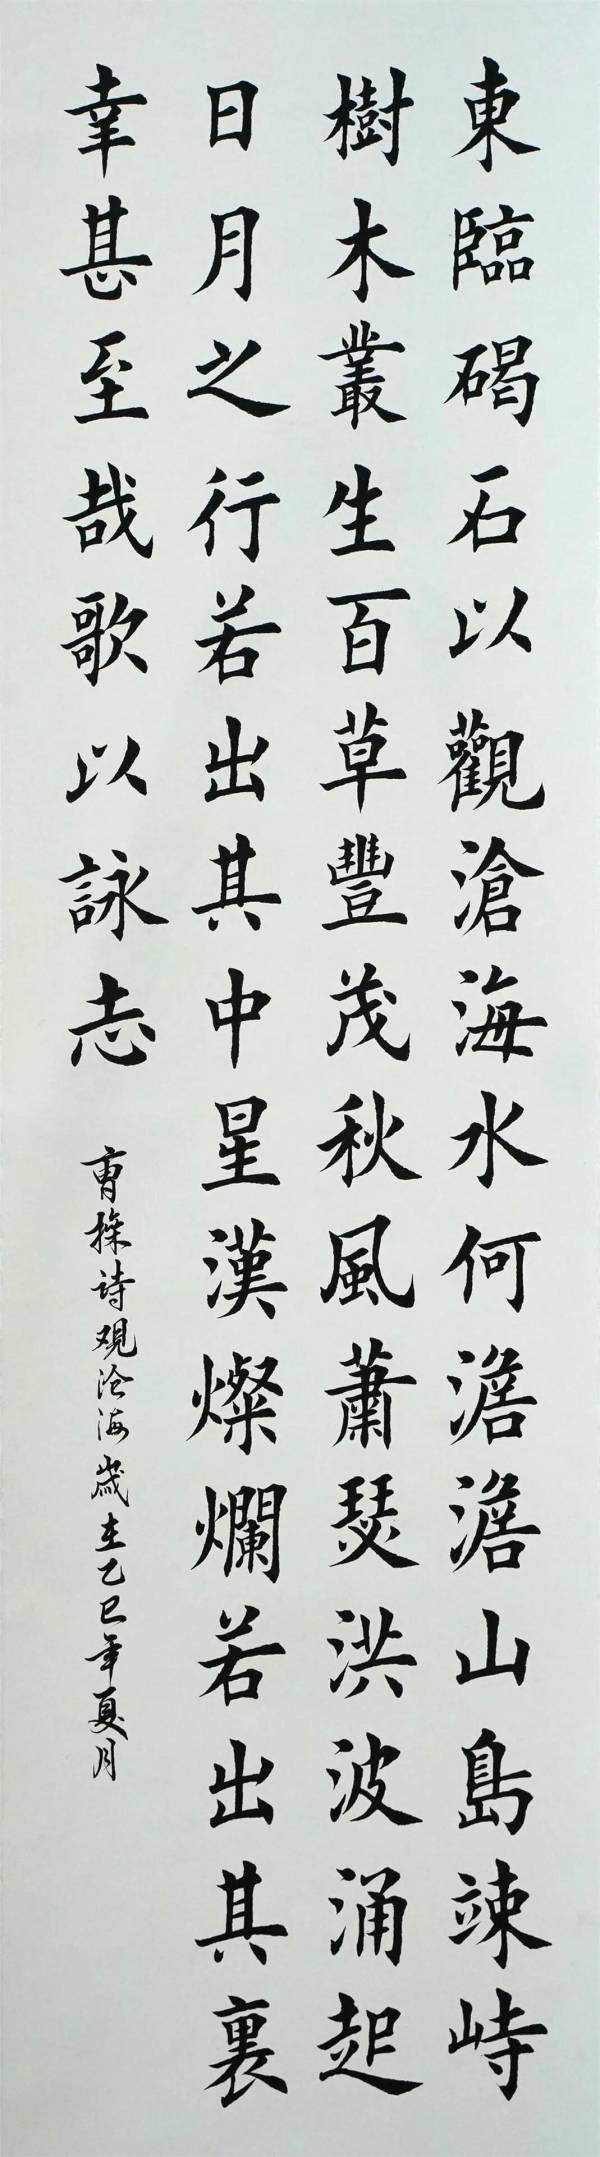 東臨碣石以觀滄海水何澹澹山島竦峙
樹木叢生百草豐茂秋風蕭瑟洪波涌起
日月之行若出其中星漢燦爛若出其裏
幸甚至哉歌以詠志
曹操诗观沧海歲在乙巳年夏月